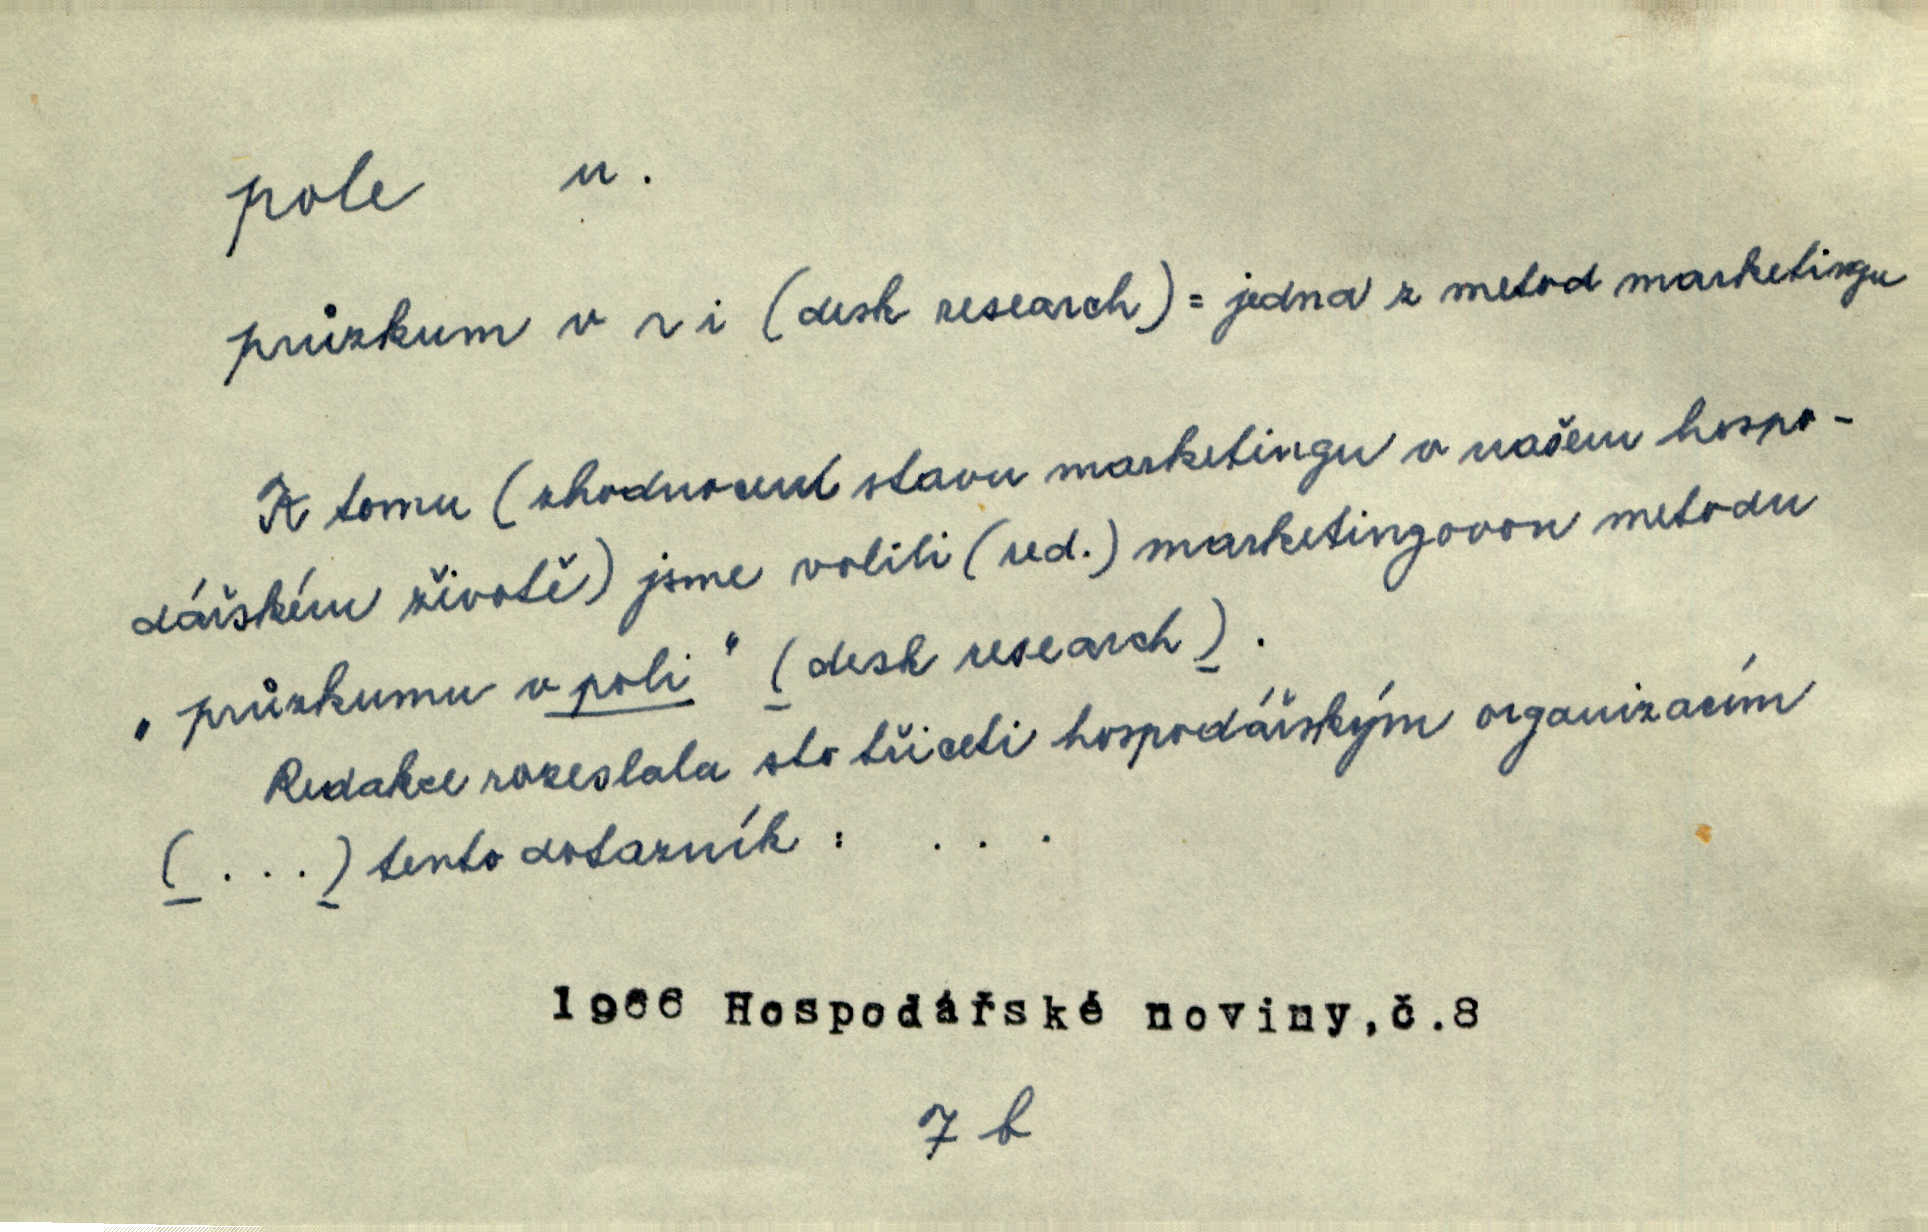 pole n.
průzkum v ~ i (desk research) = jedna z metod marketingu
K tomu (zhodnocení stavu marketingu v našem hospo-
dářském životě) jsme volili (red.) marketingovou metodu
„průzkumu v poli“ (desk research).
Redakce rozeslala sto třiceti hospodářským organizacím
(...) tento dotazník : ...
1966 Hospodářské noviny,č.8
7 b